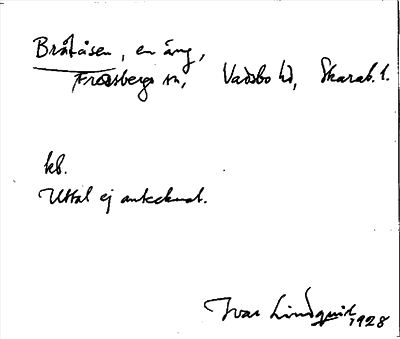 Bråtåsen, en äng,
Fredsbergs sn, Vadsbo hd, Skarab. l.
kb.
Uttal ej antecknat.
Ivar Lindquist, 1928